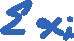 Σxᵢ